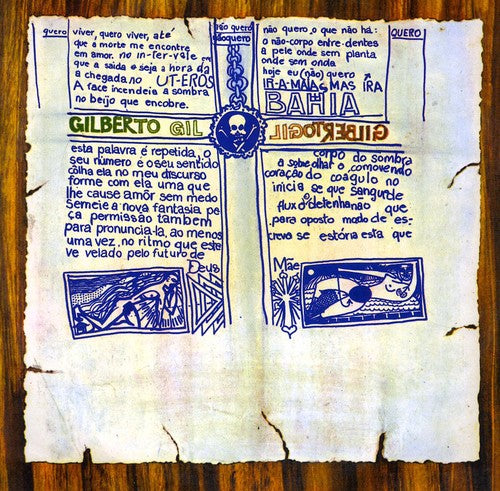 quero
viver, quero viver, até
que a morte me encontre
em amor. no in-fer-vale em
que a saida é seja a hora da
a chegada no UT-EROS
A face incendeia a sombra
no beijo que encobre.
não quero
nãoquero
não quero, o que não há:
o não-corpo entre-dentes
a pele onde sem planta
onde sem onda
hoje eu (não) quero
IR-A-MAIAS MAS IRA
BAHIA
QUERO
GILBERTO GIL
GILBERTO GIL
esta palavra é repetida, o
seu número é o seu sentido
colha ela no meu discurso
forme com ela uma que
lhe cause amôr sem medo
Semeie a nova fantasia, pe
ça permissão tambem
para pronuncia-la, ao menos
uma vez, no ritmo que este
ve velado pelo futuro de
Deus
corpo do sombra
a sobe olhar o comovendo
coração do coagulo no
inicia se que sangurde
flux o detenhão que
para oposto modo de es-
creve se estória esta que
Mãe